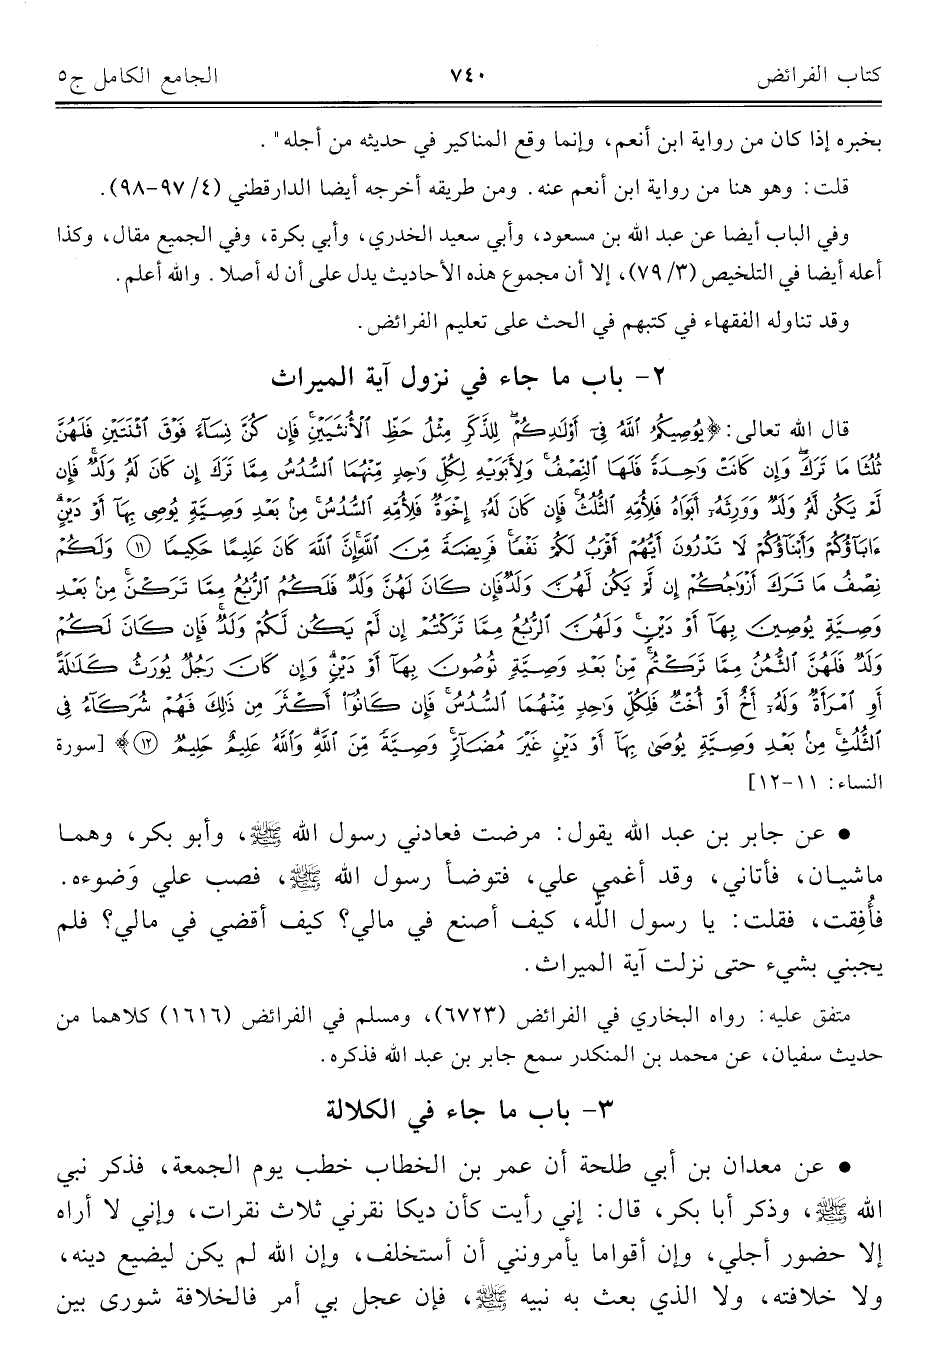 كتاب الفرائض ٧٤٠ الجامع الكامل ج٥
بخبره إذا كان من رواية ابن أنعم، وإنما وقع المناكير في حديثه من أجله".
قلت: وهو هنا من رواية ابن أنعم عنه. ومن طريقه أخرجه أيضا الدارقطني (٤/ ٩٧-٩٨).
وفي الباب أيضا عن عبد الله بن مسعود، وأبي سعيد الخدري، وأبي بكرة، وفي الجميع مقال، وكذا
أعله أيضا في التلخيص (٣/ ٧٩)، إلا أن مجموع هذه الأحاديث يدل على أن له أصلا. والله أعلم.
وقد تناوله الفقهاء في كتبهم في الحث على تعليم الفرائض.
٢- باب ما جاء في نزول آية الميراث
قال الله تعالى: ﴿يُوصِيكُمُ ٱللَّهُ فِىٓ أَوْلَٰدِكُمْ ۖ لِلذَّكَرِ مِثْلُ حَظِّ ٱلْأُنثَيَيْنِ ۚ فَإِن كُنَّ نِسَآءً فَوْقَ ٱثْنَتَيْنِ فَلَهُنَّ
ثُلُثَا مَا تَرَكَ ۖ وَإِن كَانَتْ وَٰحِدَةً فَلَهَا ٱلنِّصْفُ ۚ وَلِأَبَوَيْهِ لِكُلِّ وَٰحِدٍ مِّنْهُمَا ٱلسُّدُسُ مِمَّا تَرَكَ إِن كَانَ لَهُۥ وَلَدٌ ۚ فَإِن
لَّمْ يَكُن لَّهُۥ وَلَدٌ وَوَرِثَهُۥٓ أَبَوَاهُ فَلِأُمِّهِ ٱلثُّلُثُ ۚ فَإِن كَانَ لَهُۥٓ إِخْوَةٌ فَلِأُمِّهِ ٱلسُّدُسُ ۚ مِنۢ بَعْدِ وَصِيَّةٍ يُوصِى بِهَآ أَوْ دَيْنٍ ۗ
ءَابَآؤُكُمْ وَأَبْنَآؤُكُمْ لَا تَدْرُونَ أَيُّهُمْ أَقْرَبُ لَكُمْ نَفْعًا ۚ فَرِيضَةً مِّنَ ٱللَّهِ ۗ إِنَّ ٱللَّهَ كَانَ عَلِيمًا حَكِيمًا ﴿١١﴾ وَلَكُمْ
نِصْفُ مَا تَرَكَ أَزْوَٰجُكُمْ إِن لَّمْ يَكُن لَّهُنَّ وَلَدٌ ۚ فَإِن كَانَ لَهُنَّ وَلَدٌ فَلَكُمُ ٱلرُّبُعُ مِمَّا تَرَكْنَ ۚ مِنۢ بَعْدِ
وَصِيَّةٍ يُوصِينَ بِهَآ أَوْ دَيْنٍ ۚ وَلَهُنَّ ٱلرُّبُعُ مِمَّا تَرَكْتُمْ إِن لَّمْ يَكُن لَّكُمْ وَلَدٌ ۚ فَإِن كَانَ لَكُمْ
وَلَدٌ فَلَهُنَّ ٱلثُّمُنُ مِمَّا تَرَكْتُم ۚ مِّنۢ بَعْدِ وَصِيَّةٍ تُوصُونَ بِهَآ أَوْ دَيْنٍ ۗ وَإِن كَانَ رَجُلٌ يُورَثُ كَلَٰلَةً
أَوِ ٱمْرَأَةٌ وَلَهُۥٓ أَخٌ أَوْ أُخْتٌ فَلِكُلِّ وَٰحِدٍ مِّنْهُمَا ٱلسُّدُسُ ۚ فَإِن كَانُوٓا۟ أَكْثَرَ مِن ذَٰلِكَ فَهُمْ شُرَكَآءُ فِى
ٱلثُّلُثِ ۚ مِنۢ بَعْدِ وَصِيَّةٍ يُوصَىٰ بِهَآ أَوْ دَيْنٍ غَيْرَ مُضَآرٍّ ۚ وَصِيَّةً مِّنَ ٱللَّهِ ۗ وَٱللَّهُ عَلِيمٌ حَلِيمٌ ﴿١٢﴾﴾ [سورة
النساء: ١١-١٢]
• عن جابر بن عبد الله يقول: مرضت فعادني رسول الله ﷺ، وأبو بكر، وهما
ماشيان، فأتاني، وقد أغمي علي، فتوضأ رسول الله ﷺ، فصب علي وَضوءه.
فأُفِقت، فقلت: يا رسول الله، كيف أصنع في مالي؟ كيف أقضي في مالي؟ فلم
يجبني بشيء حتى نزلت آية الميراث.
متفق عليه: رواه البخاري في الفرائض (٦٧٢٣)، ومسلم في الفرائض (١٦١٦) كلاهما من
حديث سفيان، عن محمد بن المنكدر سمع جابر بن عبد الله فذكره.
٣- باب ما جاء في الكلالة
• عن معدان بن أبي طلحة أن عمر بن الخطاب خطب يوم الجمعة، فذكر نبي
الله ﷺ، وذكر أبا بكر، قال: إني رأيت كأن ديكا نقرني ثلاث نقرات، وإني لا أراه
إلا حضور أجلي، وإن أقواما يأمرونني أن أستخلف، وإن الله لم يكن ليضيع دينه،
ولا خلافته، ولا الذي بعث به نبيه ﷺ، فإن عجل بي أمر فالخلافة شورى بين